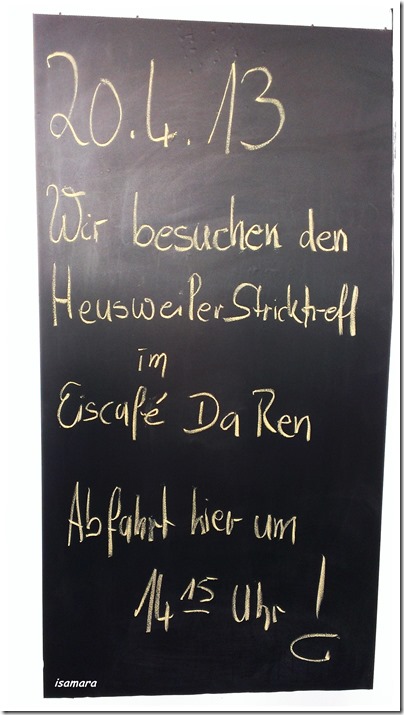 20.4.13
Wir besuchen den
Heusweiler Stricktreff
im
Eiscafé Da Ren
Abfahrt hier um
14 15 Uhr !
isamara